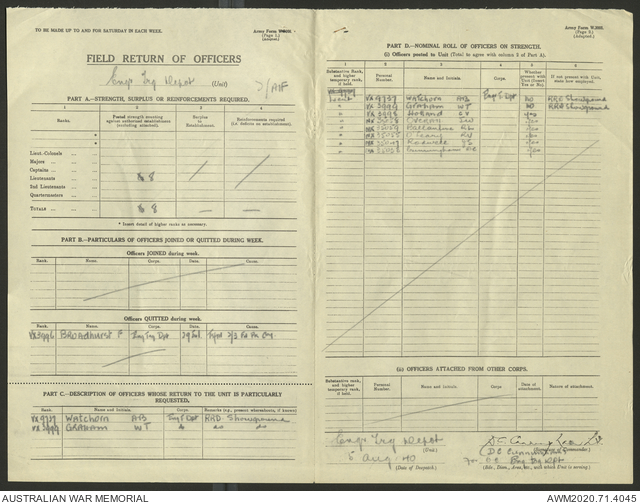 TO BE MADE UP TO AND FOR SATURDAY IN EACH WEEK.
Army Form
(Page 1.)
(Adapted.)
FIELD RETURN OF OFFICERS
Engr Trg Depot (Unit) 7/AIF
PART A.—STRENGTH, SURPLUS OR REINFORCEMENTS REQUIRED.
1 2 3 4
Ranks. Posted strength counting against authorized establishment (excluding attached). Surplus to Establishment. Reinforcements required (i.e. deficits on establishment).
*
*
Lieut.-Colonels
Majors
Captains
Lieutenants 8
2nd Lieutenants
Quartermasters
TOTALS 8 — —
* Insert detail of higher ranks as necessary.
PART B.—PARTICULARS OF OFFICERS JOINED OR QUITTED DURING WEEK.
Officers JOINED during week.
Rank. Name. Corps. Date. From whence.
Officers QUITTED during week.
Rank. Name. Corps. Date.
VX3996 BROADHURST F Eng Trg Dpt 29 Jul 2/3 Fd Pk Coy.
PART C.—DESCRIPTION OF OFFICERS WHOSE RETURN TO THE UNIT IS PARTICULARLY REQUESTED.
Rank. Name and Initials. Corps. Remarks (e.g., present whereabouts, if known)
VX9737 WATCHORN AB Eng T Dpt RRD Showground
VX3999 GRAHAM WT do do
Army Form W.3008.
(Page 2.)
(Adapted.)
PART D.—NOMINAL ROLL OF OFFICERS ON STRENGTH.
(i) Officers posted to Unit (Total to agree with column 2 of Part A).
1 2 3 4 5 6
Substantive Rank, and higher temporary rank, if held. Personal Number. Name and Initials. Corps. Whether present with Unit. (Insert Yes or No) If not present with Unit, state how employed.
Lieut VX9737 WATCHORN AB Eng T Dpt NO RRD Showground
" VX3999 GRAHAM WT NO RRD Showground
" VX3998 HOLLAND Yes
" Yes
" Ballantine Yes
" O'Leary RV Yes
" Yes
" Cunningham DC Yes
(ii) OFFICERS ATTACHED FROM OTHER CORPS.
Substantive rank, and higher temporary rank, if held. Personal Number. Name and Initials. Corps Date of attachment. Nature of attachment.
Engr Trg Depot (Unit)
5 Aug 40
(Date of Despatch.)
(Signature of Commander.)
(DC Cunningham)
For OC Eng Trg Dpt
(Bde., Divn., Area, etc., with which Unit is serving.)
AUSTRALIAN WAR MEMORIAL
AWM2020.71.4045